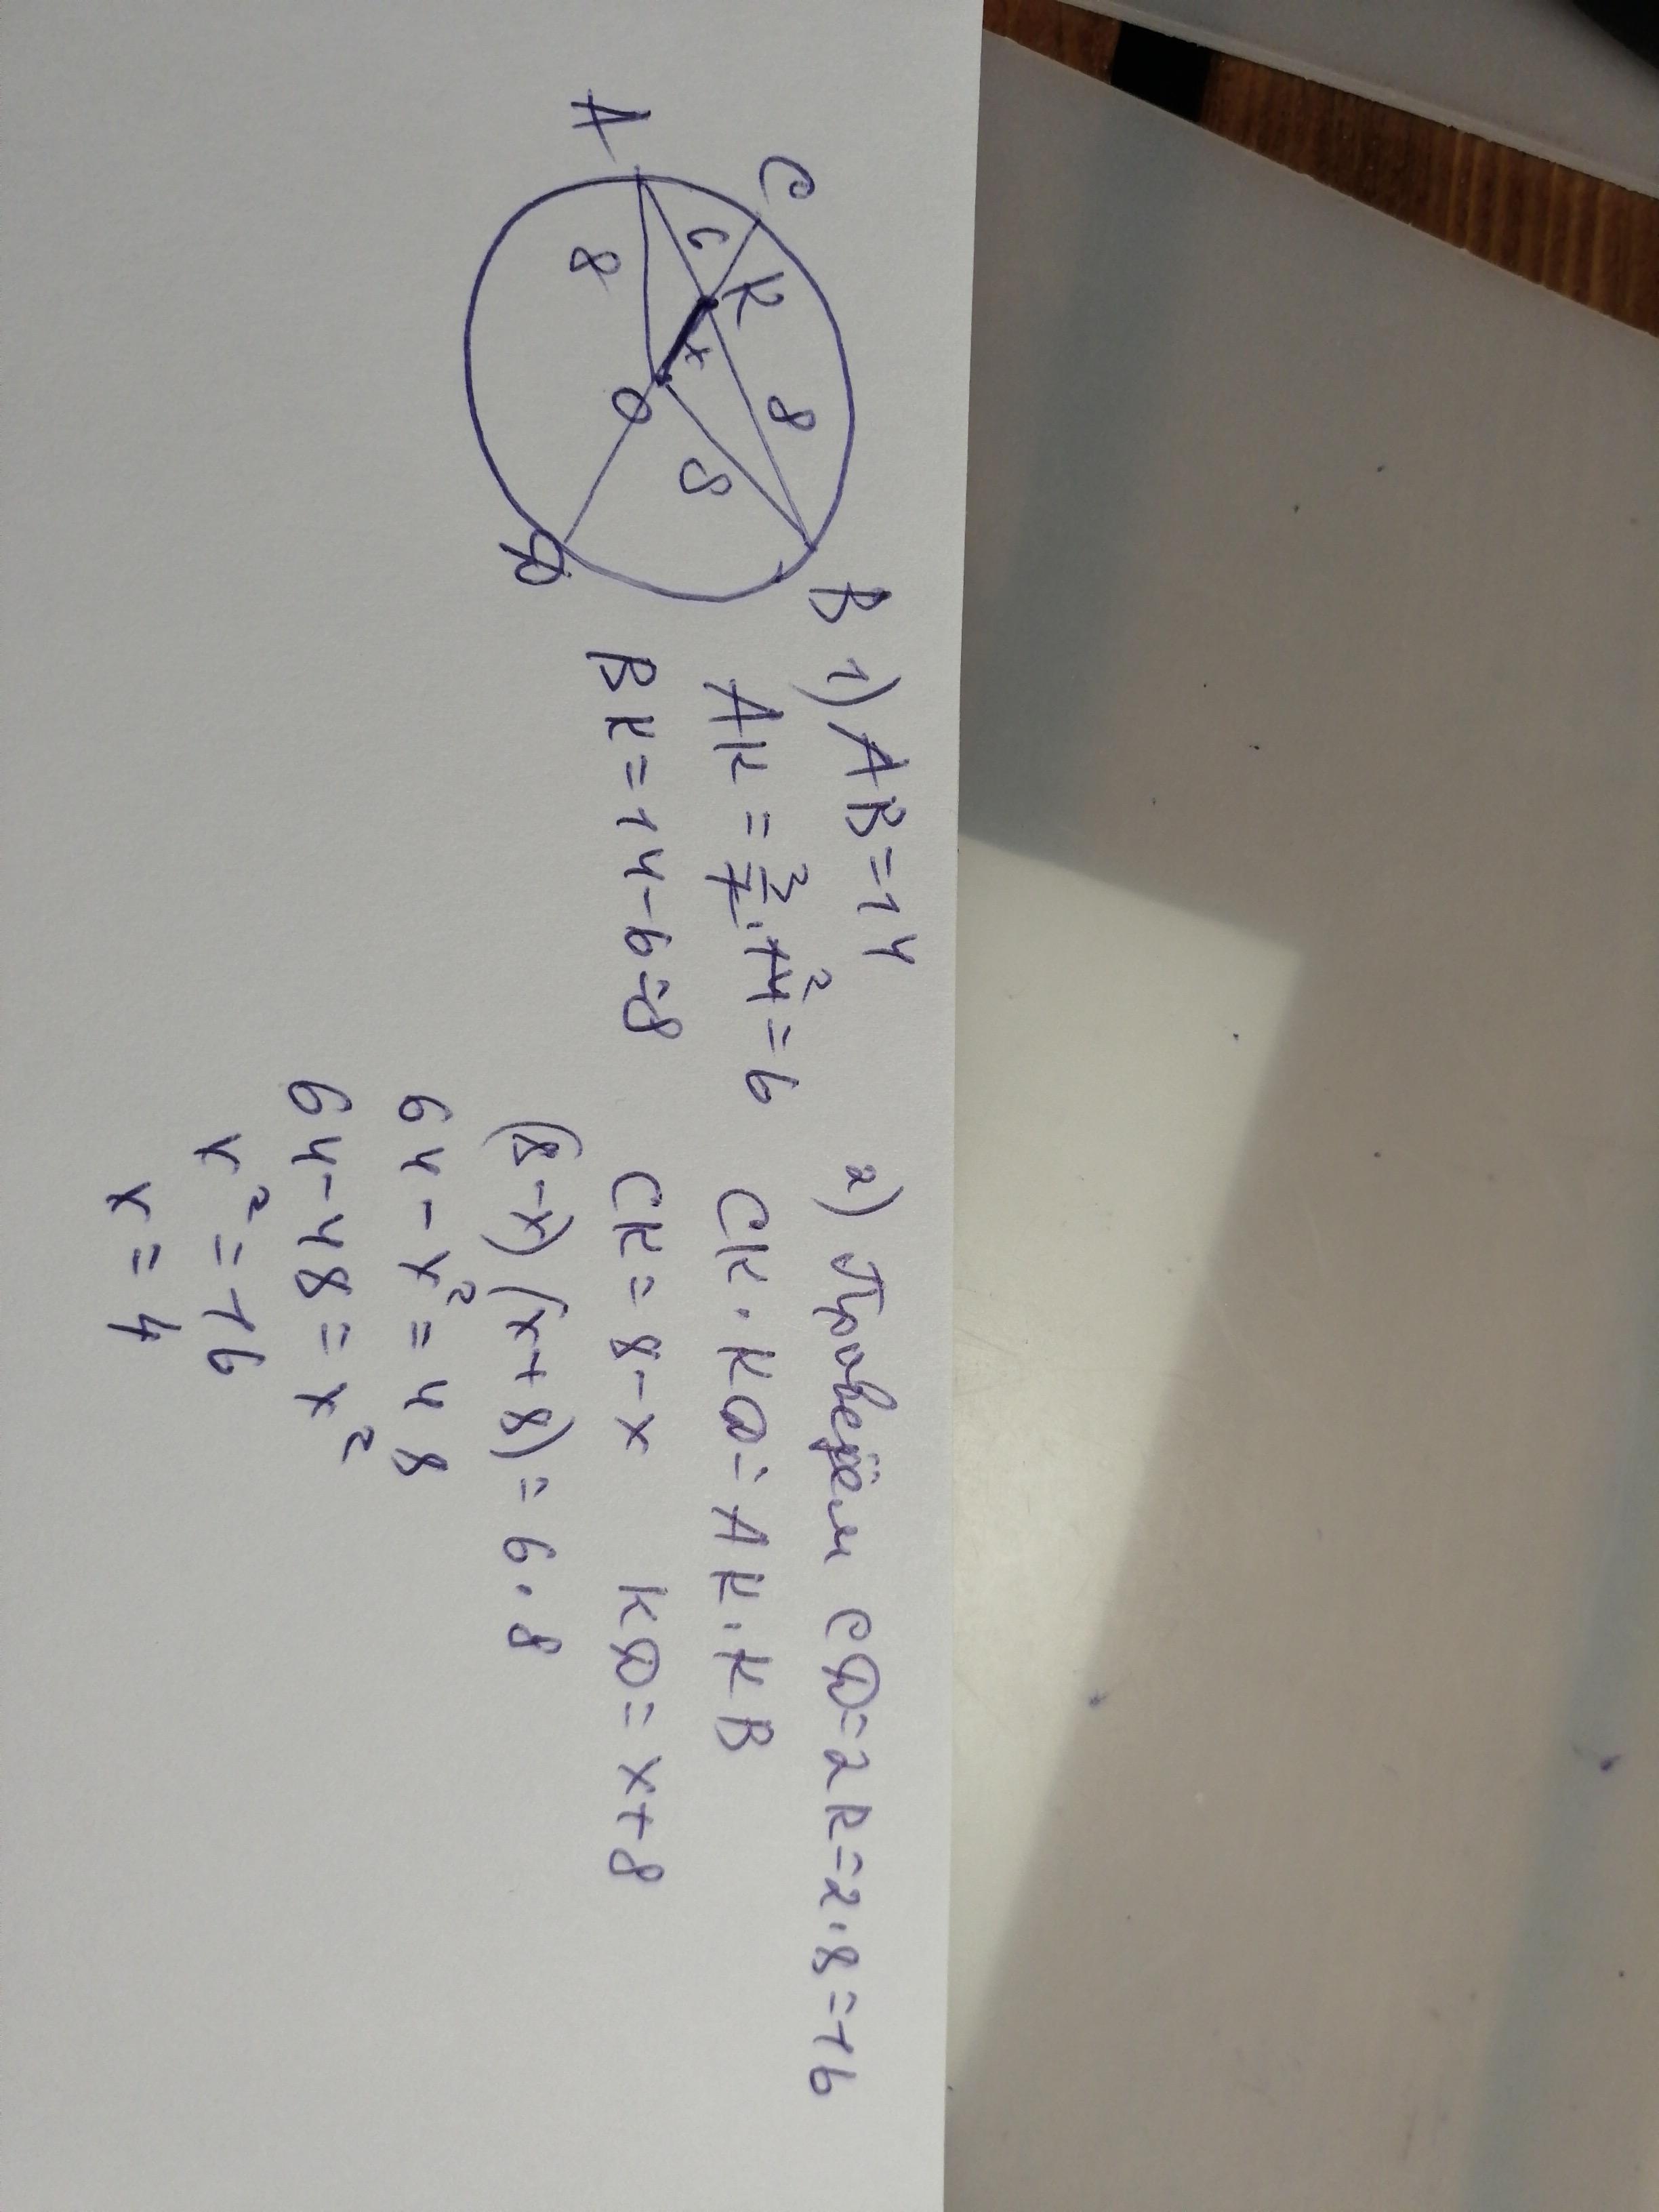 A
C
6
К
8
x
8
O
8
Q
B
1) AB=14
AK = 3/7 · 14 2 = 6
BK = 14-6=8
2) Проведём CQ=2R=2·8=16
CK · KQ = AK · KB
CK = 8-x KQ = x+8
(8-x)(x+8) = 6·8
64 - x² = 48
64-48 = x²
x² = 16
x = 4